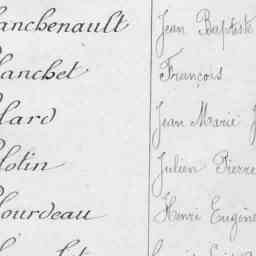 lanchenault Jean Baptiste
lanchet François
lard Jean Marie J
lotin Julien Pierre
lourdeau Henri Eugène